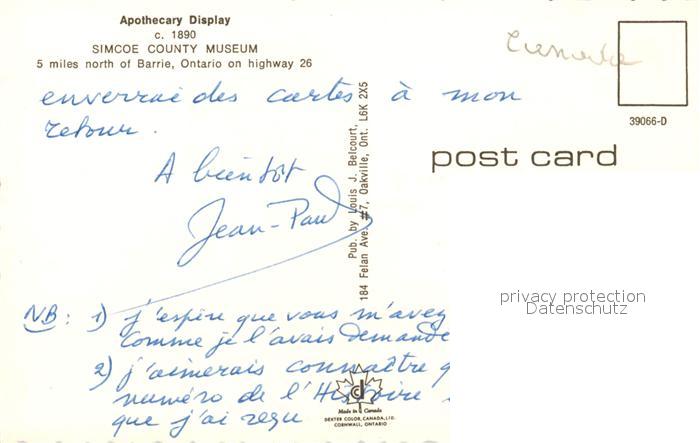 Apothecary Display
c. 1890
SIMCOE COUNTY MUSEUM
5 miles north of Barrie, Ontario on highway 26
enverrai des cartes à mon
retour.
A bientot
Jean-Paul
NB: 1) j'espère que vous m'avez
comme je l'avais demande
2) j'aimerais connaître q
numéro de l'Histoire
que j'ai reçu
Pub. by Louis J. Belcourt,
184 Felan Ave. #7, Oakville, Ont. L6K 2X5
39066-D
post card
privacy protection
Datenschutz
dc
Made in Canada
DEXTER COLOR, CANADA, LTD.
CORNWALL, ONTARIO